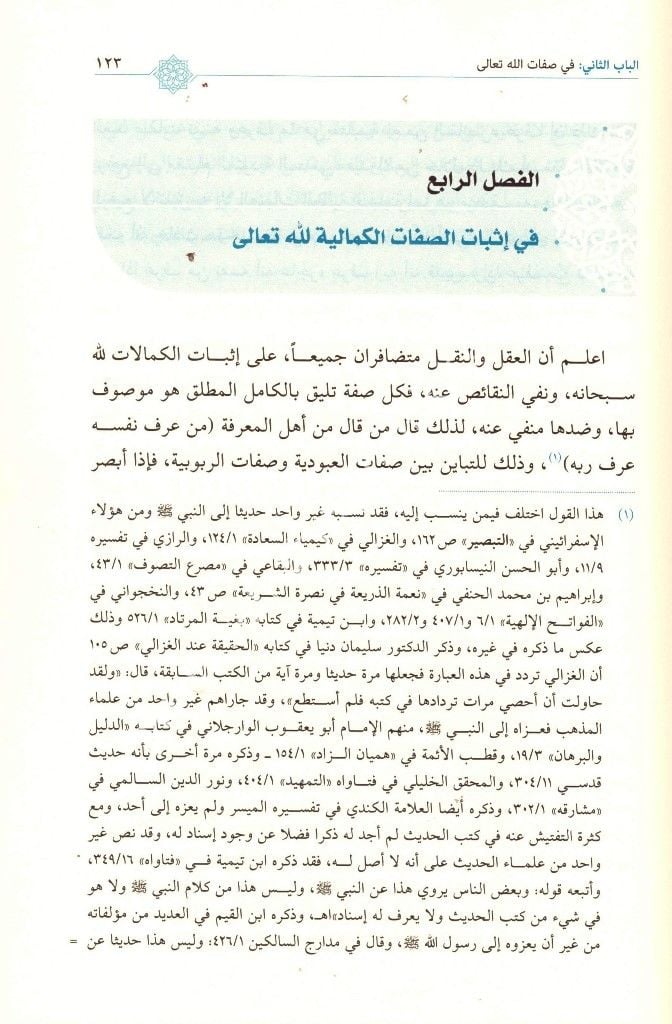 الباب الثاني: في صفات الله تعالى
١٢٣
الفصل الرابع
في إثبات الصفات الكمالية لله تعالى
اعلم أن العقل والنقل متضافران جميعاً، على إثبات الكمالات لله
سبحانه، ونفي النقائص عنه، فكل صفة تليق بالكامل المطلق هو موصوف
بها، وضدها منفي عنه، لذلك قال من قال من أهل المعرفة (من عرف نفسه
عرف ربه)(١)، وذلك للتباين بين صفات العبودية وصفات الربوبية، فإذا أبصر
(١) هذا القول اختلف فيمن ينسب إليه، فقد نسبه غير واحد حديثا إلى النبي ﷺ ومن هؤلاء
الإسفرائيني في «التبصير» ص١٦٢، والغزالي في «كيمياء السعادة» ١٢٤/١، والرازي في تفسيره
١١/٩، وأبو الحسن النيسابوري في «تفسيره» ٣٣٣/٣، والبقاعي في «مصرع التصوف» ٤٣/١،
وإبراهيم بن محمد الحنفي في «نعمة الذريعة في نصرة الشريعة» ص ٤٣، والنخجواني في
«الفواتح الإلهية» ٦/١ و٤٠٧/١ و٢٨٢/٢، وابن تيمية في كتابه «بغية المرتاد» ٥٢٦/١ وذلك
عكس ما ذكره في غيره، وذكر الدكتور سليمان دنيا في كتابه «الحقيقة عند الغزالي» ص ١٠٥
أن الغزالي تردد في هذه العبارة فجعلها مرة حديثا ومرة آية من الكتب السابقة، قال: «ولقد
حاولت أن أحصي مرات تردادها في كتبه فلم أستطع»، وقد جاراهم غير واحد من علماء
المذهب فعزاه إلى النبي ﷺ، منهم الإمام أبو يعقوب الوارجلاني في كتابه «الدليل
والبرهان» ١٩/٣، وقطب الأئمة في «هميان الزاد» ١٥٤/١ ـ وذكره مرة أخرى بأنه حديث
قدسي ٣٠٤/١١، والمحقق الخليلي في فتاواه «التمهيد» ٤٠٤/١، ونور الدين السالمي في
«مشارقه» ٣٠٢/١، وذكره أيضا العلامة الكندي في تفسيره الميسر ولم يعزه إلى أحد، ومع
كثرة التفتيش عنه في كتب الحديث لم أجد له ذكرا فضلا عن وجود إسناد له، وقد نص غير
واحد من علماء الحديث على أنه لا أصل له، فقد ذكره ابن تيمية في «فتاواه» ٣٤٩/١٦،
وأتبعه قوله: وبعض الناس يروي هذا عن النبي ﷺ، وليس هذا من كلام النبي ﷺ ولا هو
في شيء من كتب الحديث ولا يعرف له إسناد»اهـ، وذكره ابن القيم في العديد من مؤلفاته
من غير أن يعزوه إلى رسول الله ﷺ، وقال في مدارج السالكين ٤٢٦/١: وليس هذا حديثا عن =